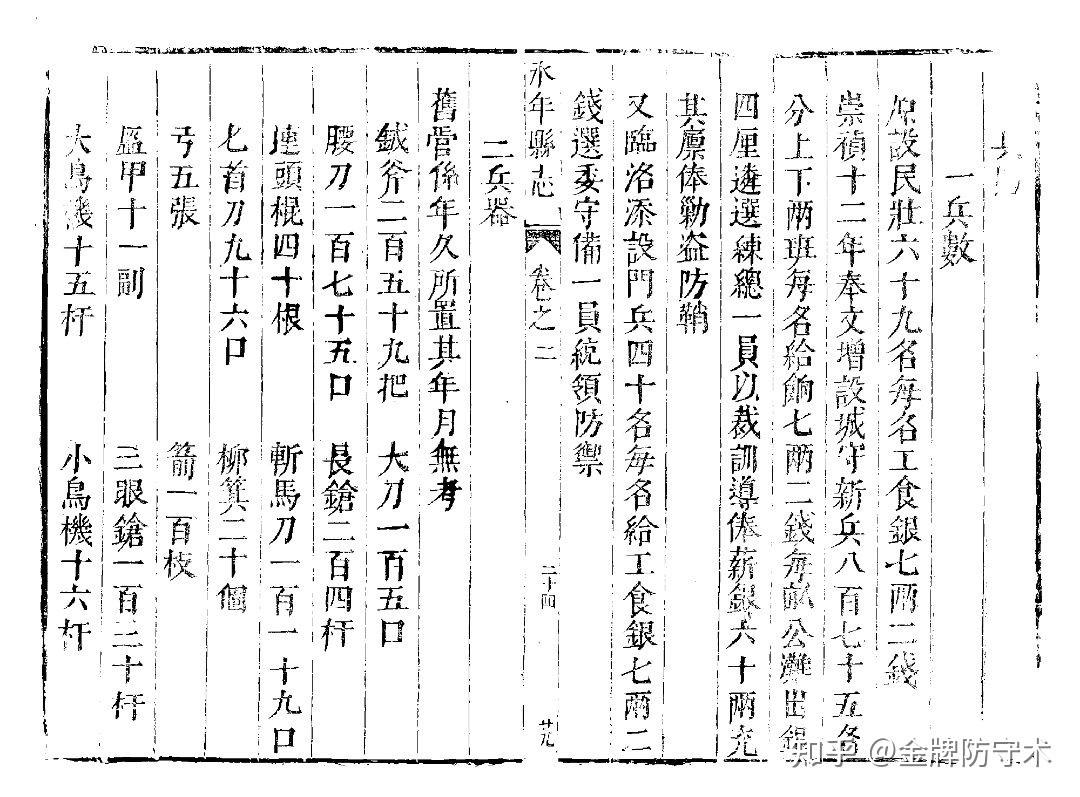 一兵數
原設民壯六十九名每名工食銀七兩二錢
崇禎十二年奉文增設城守新兵八百七十五名
分上下兩班每名給餉七兩二錢每畝公灘出銀
四厘遴選練總一員以裁訓導俸薪銀六十兩充
其廩俸勦盗防鞘
又臨洺添設門兵四十名每名給工食銀七兩二
錢選委守備一員統領防禦
永年縣志 卷之二 二十四 廿九
二兵器
舊管係年久所置其年月無考
鉞斧二百五十九把 大刀一百五口
腰刀一百七十五口 長鎗二百四杆
連頭棍四十根 斬馬刀一百一十九口
匕首刀九十六口 柳箕二十個
弓五張 箭一百枝
盔甲十一副 三眼鎗一百二十杆
大鳥機十五杆 小鳥機十六杆
知乎 @金牌防守术